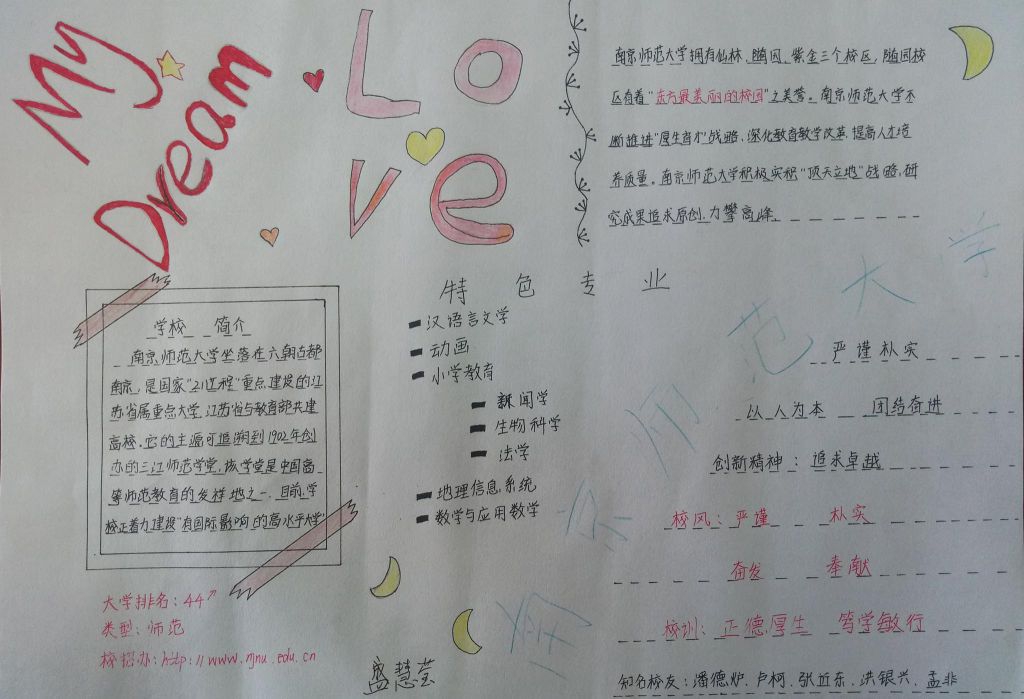 My
Dream
Lo
ve
南京师范大学拥有仙林、随园、紫金三个校区，随园校
区有着“东方最美丽的校园”之美誉。南京师范大学不
断推进“厚生育才”战略，深化教育教学改革，提高人才培
养质量。南京师范大学积极实积“顶天立地”战略，研
究成果追求原创、力攀高峰
学校 简介
南京师范大学坐落在六朝古都
南京，是国家“211过程”重点建设的江
苏省属重点大学，江苏省与教育部共建
高校。它的主源可追朔到1902年创
办的三江师范学堂，该学堂是中国高
等师范教育的发祥地之一。目前，学
校正着力建设“有国际影响的高水平大学”
大学排名：44↗
类型：师范
校招办：http://www.njnu.edu.cn
特色专业
汉语言文学
动画
小学教育
新闻学
生物科学
法学
地理信息系统
数学与应用数学
盛慧莹
南京师范大学
严谨朴实
以人为本 团结奋进
创新精神：追求卓越
校风：严谨 朴实
奋发 奉献
校训：正德厚生 笃学敏行
知名校友：潘德炉、卢柯、张近东、洪银兴、孟非